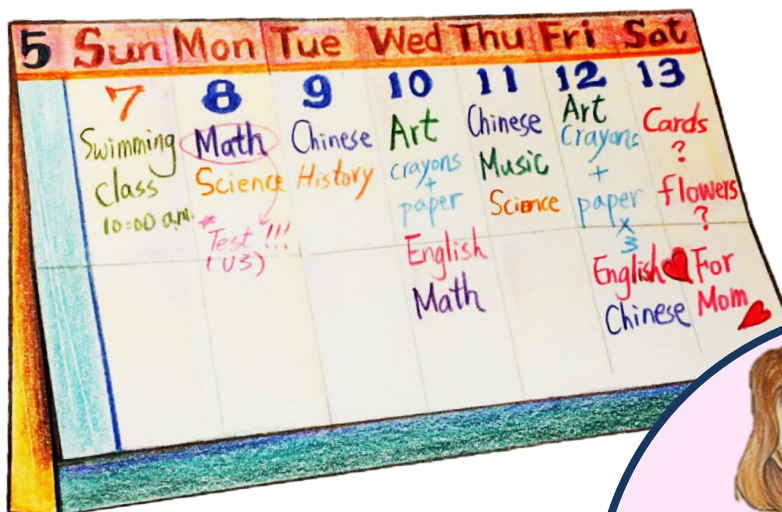 5 Sun Mon Tue Wed Thu Fri Sat
7
Swimming
class
10:00 a.m.
8
Math
Science
*Test!!!
(U3)
9
Chinese
History
10
Art
crayons
+
paper
English
Math
11
Chinese
Music
Science
12
Art
Crayons
+
paper
x
3
English
Chinese
13
Cards
?
flowers
?
For
Mom